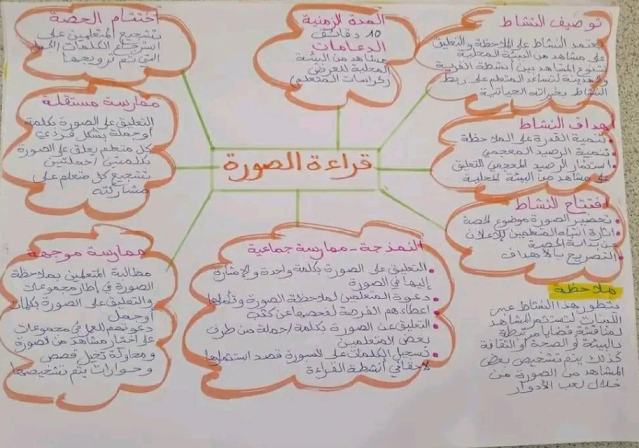 قراءة الصورة
توصيف النشاط
يعتمد النشاط على الملاحظة والتعليق
على مشاهد من البيئة المحلية
تتنوع المشاهد بين أنشطة القرية
والمدينة لتساعد المتعلم على ربط
النشاط بخبراته الحياتية
أهداف النشاط
تنمية القدرة على الملاحظة
تنمية الرصيد المعجمي
استثمار الرصيد المعجمي للتعليق
على مشاهد من البيئة المحلية
افتتاح النشاط
تحضير الصورة موضوع الحصة
إثارة انتباه المتعلمين للإعلان
عن بداية الحصة
التصريح بالأهداف
ملاحظة
يتطور هذا النشاط عبر
السنوات لتستثمر المشاهد
لمناقشة قضايا مرتبطة
بالبيئة أو الصحة أو الثقافة
كذلك يتم تشخيص بعض
المشاهد من الصورة من
خلال لعب الأدوار
المدة الزمنية
10 دقائق
الدعامات
مشاهد من البيئة
المحلية للعرض
(كراسات المتعلم)
النمذجة - ممارسة جماعية
التعليق على الصورة بكلمة واحدة والإشارة
إليها في الصورة
دعوة المتعلمين لملاحظة الصورة
إعطاءهم الفرصة لفحصها عن كثب
التعليق عن الصورة بكلمة / جملة من طرف
بعض المتعلمين
تسجيل الكلمات على الصورة قصد استثمارها
لاحقا في أنشطة القراءة
ممارسة موجهة
مطالبة المتعلمين بملاحظة
الصورة في إطار مجموعات
والتعليق على الصورة بكلمات
أو جمل
دعوتهم للعمل في مجموعات
على اختيار مشاهد من الصورة
ومحاولة تخيل قصص
وحوارات يتم تشخيصها
ممارسة مستقلة
التعليق على الصورة بكلمة
أو جملة بشكل فردي
كل متعلم يعلق على الصورة
بكلمتين / جملتين
تشجيع كل متعلم على
مشاركته
اختتام الحصة
تشجيع المتعلمين على
استرجاع الكلمات
التي تم ترويجها